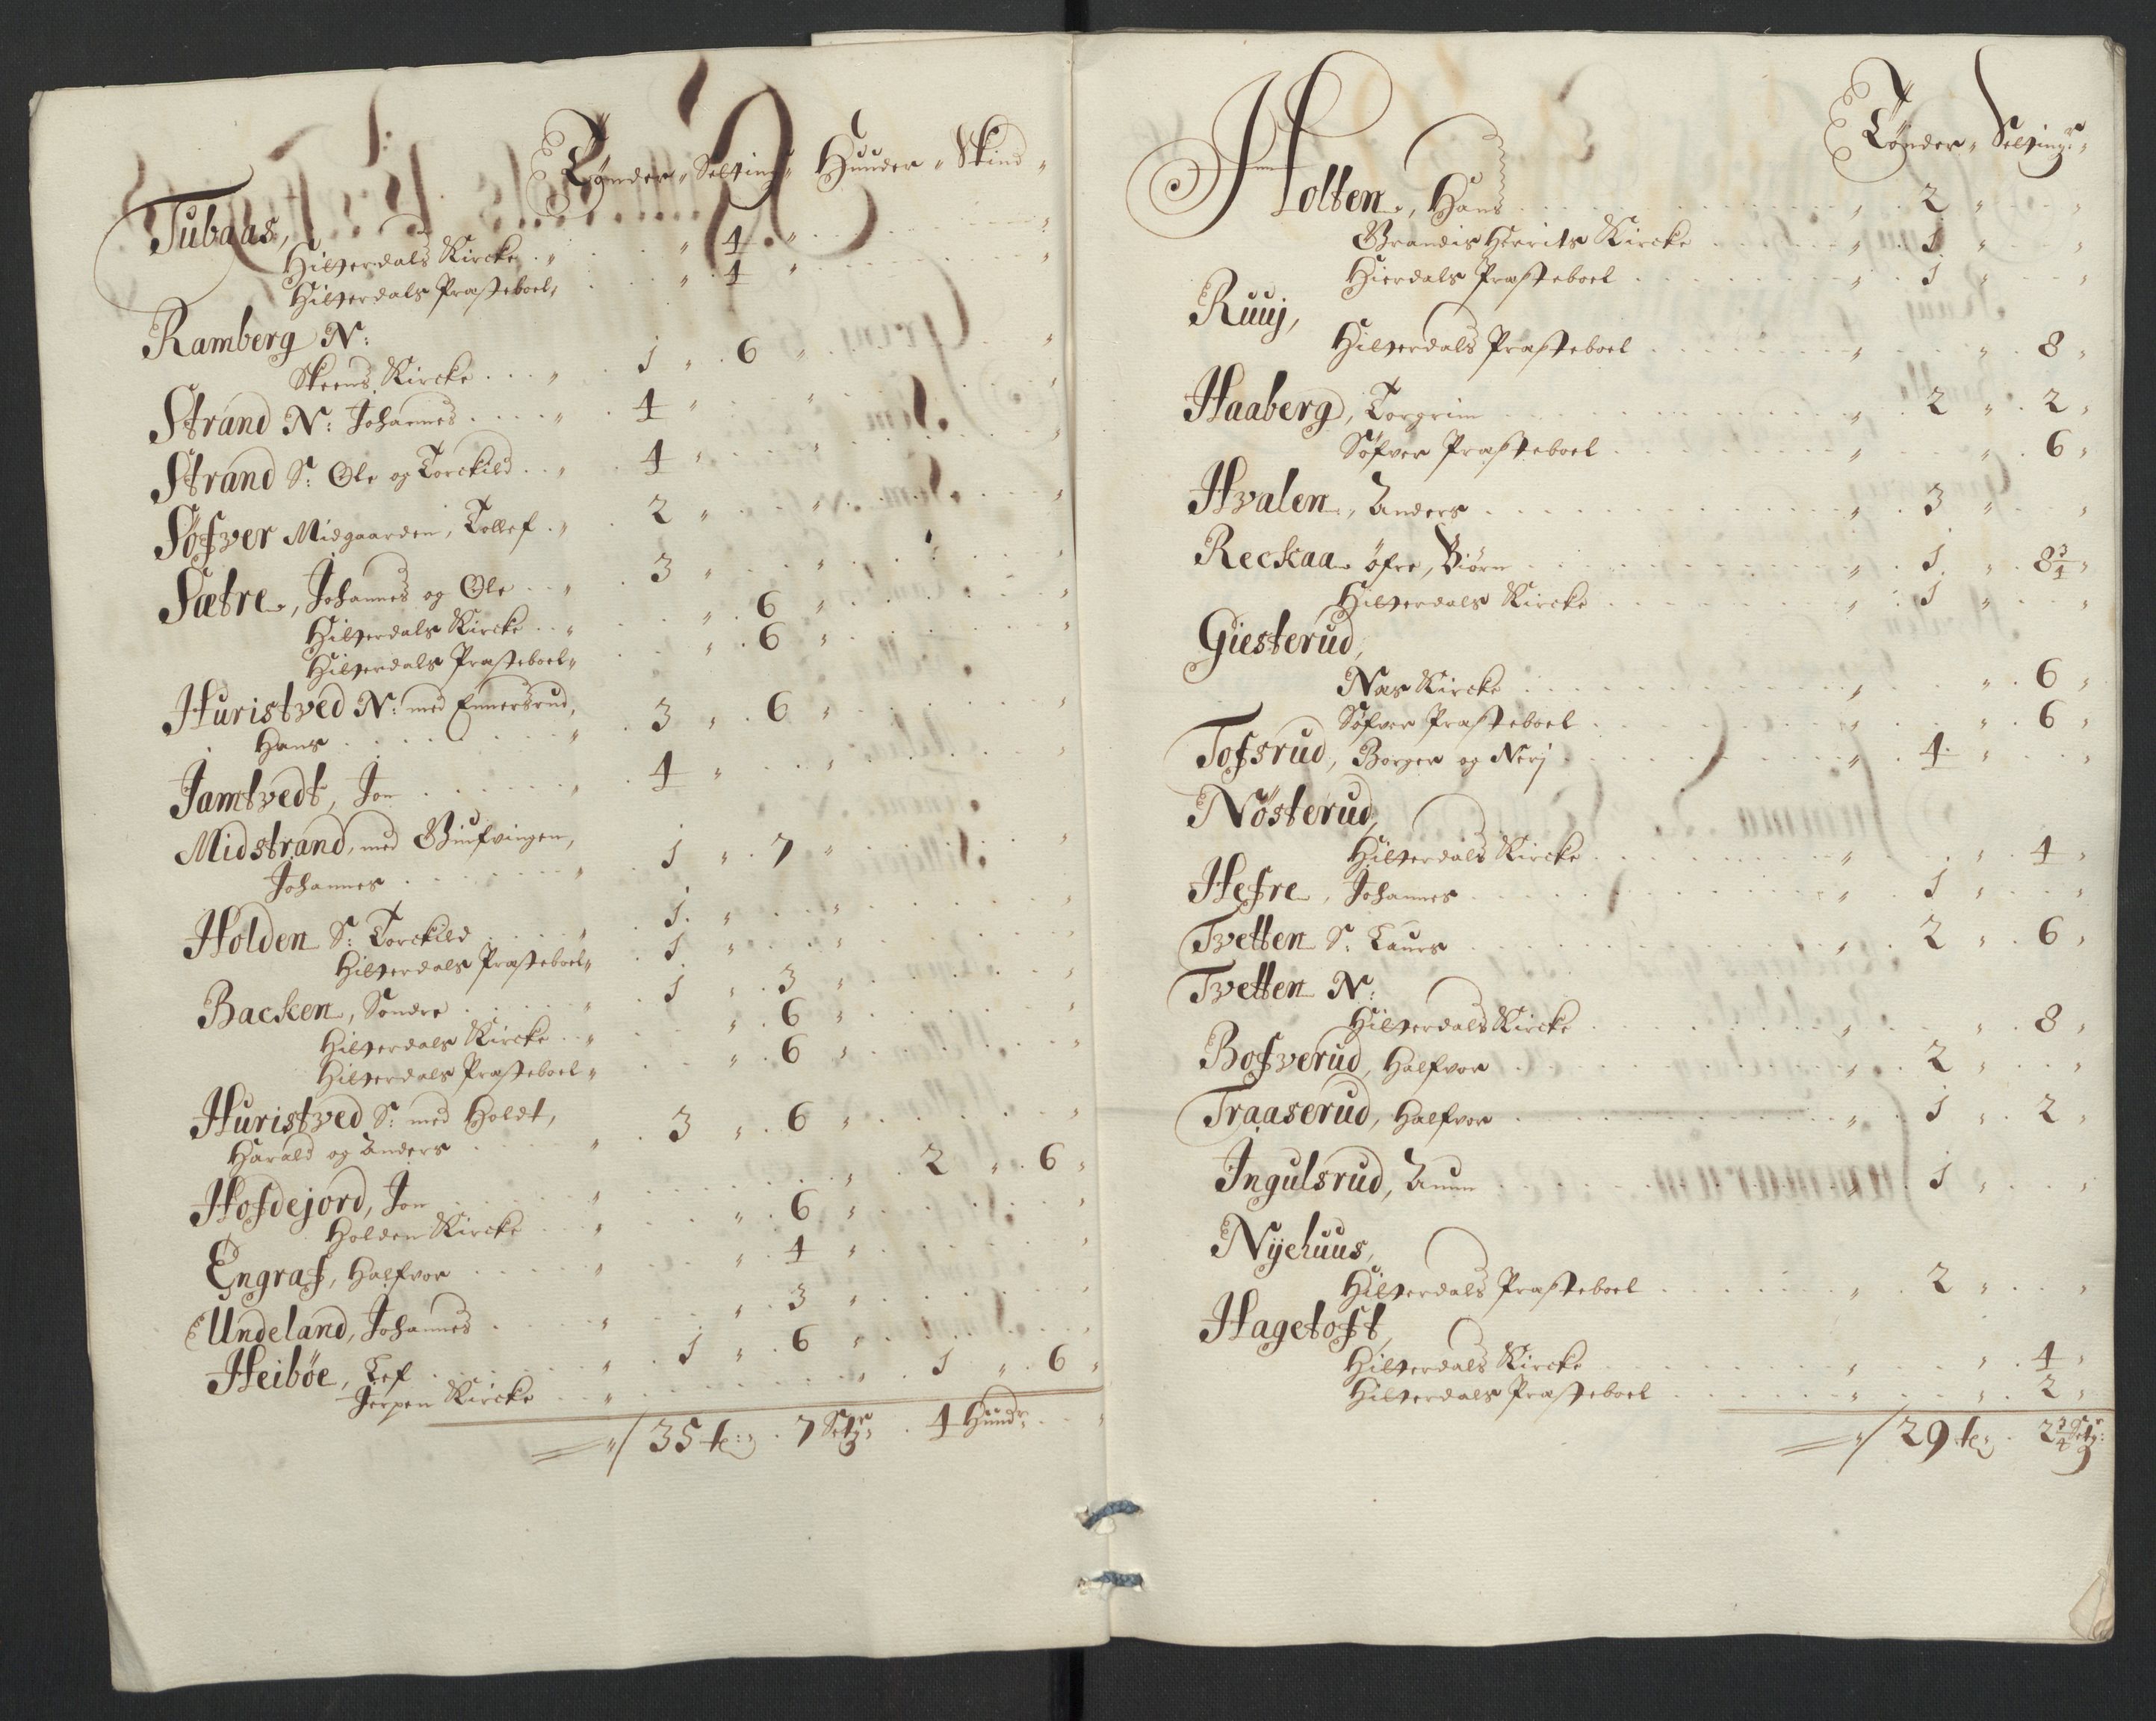 Tönder " Setting " Huuder " Skind "
Tubaas,
Hitterdals Kircke . " . . " 4 "
Hitterdals Præsteboel, " . . " 4 "
Ramberg N:
Skeens Kircke . . . " . 1 " . 6 "
Strand N: Johannes . . . . " . 4 "
Strand S: Ole og Torckild . . " . 4 "
Söfver Midgaarden, Tollef . " . 2 "
Sætre, Johannes og Ole . . " . 3 "
Hitterdals Kircke . . " . . " . 6 "
Hitterdals Præsteboel " . . " . 6 "
Huristved N: med Ennersrud,
Hans . . . . . . " . 3 " . 6 "
Jamtvedt, Jon . . . . . . " . 4 "
Midstrand, med Gunfvingen,
Johannes . . . . . . " . 1 " . 7 "
Holden S: Torckild . . . . " . 1 "
Hitterdals Præsteboel " . 1 "
Backen, Sondre . . . . . " . 1 " . 3 "
Hitterdals Kircke . . " . . " . 6 "
Hitterdals Præsteboel " . . " . 6 "
Huristved S: med Holdt,
Harald og Anders . . . . " . 3 " . 6 "
Hofdejord, Jon . . . . . . " . . . . . " . 2 " . 6 "
Holden Kircke . . . " . . " . 6 "
Engraf, Halfvor . . . . . " . . " . 4 "
Undeland, Johannes . . . . " . . " . 3 "
Heiböe, Lef . . . . . . " . 1 " . 6 "
Jerpen Kircke . . . " . . . . . " . 1 " . 6 "
" / 35 te: . 7 Setr: . 4 Hundr:
Tönder " Settingr "
Holten, Hans . . . . . . " . 2 "
Brandis Herrits Kircke . . . . " . 1 "
Hierdals Præsteboel . . . . . " . 1 "
Ruuj,
Hitterdals Præsteboel . . . . . " . . " . 8 "
Haaberg, Torgrim . . . . . . " . 2 " . 2 "
Söfver Præsteboel . . . . . " . . " . 6 "
Hvalen, Anders . . . . . . " . 3 "
Reckaa öfre, Biörn . . . . . " . 1 " . 8 3/4 "
Hitterdals Kircke . . . . . " . 1 "
Giesterud,
Næs Kircke . . . . . . " . . " . 6 "
Söfver Præsteboel . . . . . " . . " . 6 "
Tofsrud, Borger og Nerj . . . . " . 4 "
Nösterud,
Hitterdals Kircke . . . . . " . . " . 4 "
Hefre, Johannes . . . . . . " . 1 "
Tvetten S: Laurs . . . . . . " . 2 " . 6 "
Tvetten N:
Hitterdals Kircke . . . . . " . . " . 8 "
Bofverud, Halfvor . . . . . . " . 2 "
Traaserud, Halfvor . . . . . . " . 1 " . 2 "
Ingulsrud, Aunn . . . . . . " . 1 "
Nyehuus,
Hitterdals Præsteboel . . . . . " . 2 "
Hagetoft,
Hitterdals Kircke . . . . . " . . " . 4 "
Hitterdals Præsteboel . . . . . " . . " . 2 "
" / 29 te: . 2 3/4 Setr: